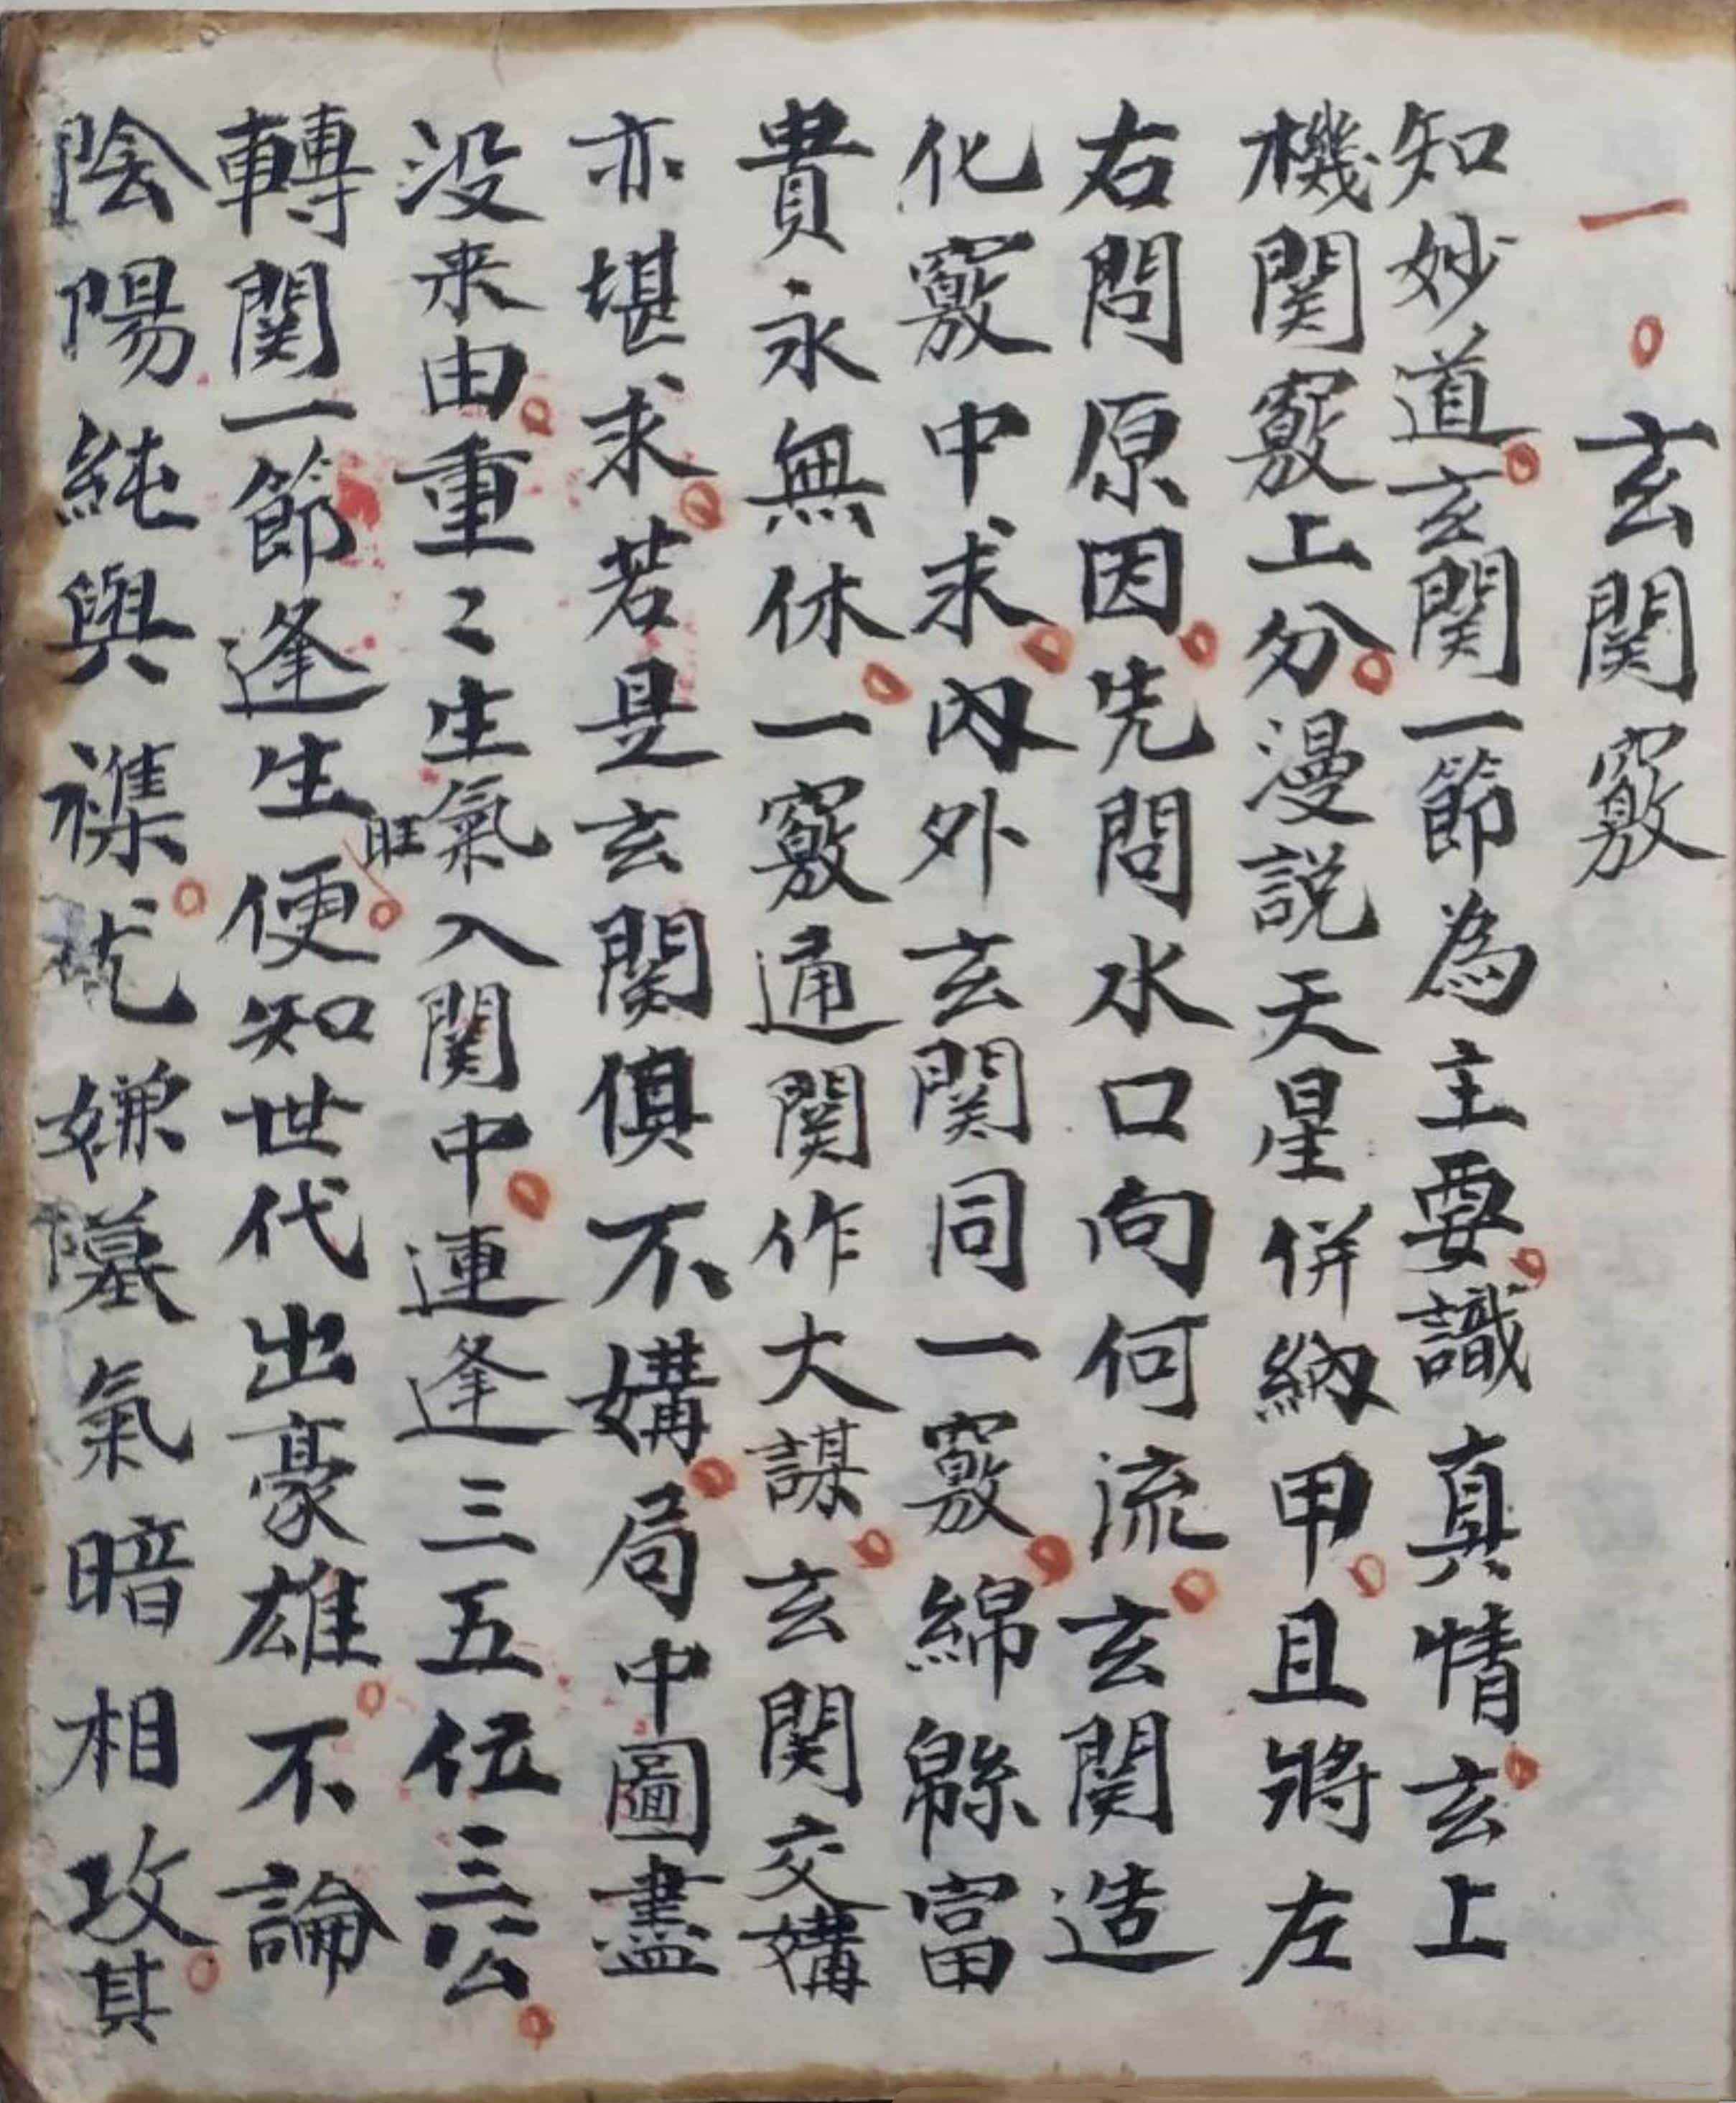 一 玄関竅
知妙道玄関一節為主要識真情玄上
機関竅上分漫説天星併納甲且將左
右問原因先問水口向何流玄関造
化竅中求內外玄関同一竅綿綿富
貴永無休一竅通関作大謀玄関交媾
亦堪求若是玄関俱不媾局中圖畫
没来由重〻生旺氣入関中連逢三五位三公
轉関一節逢生便知世代出豪雄不論
陰陽純與襍尤嫌墓氣暗相攻其